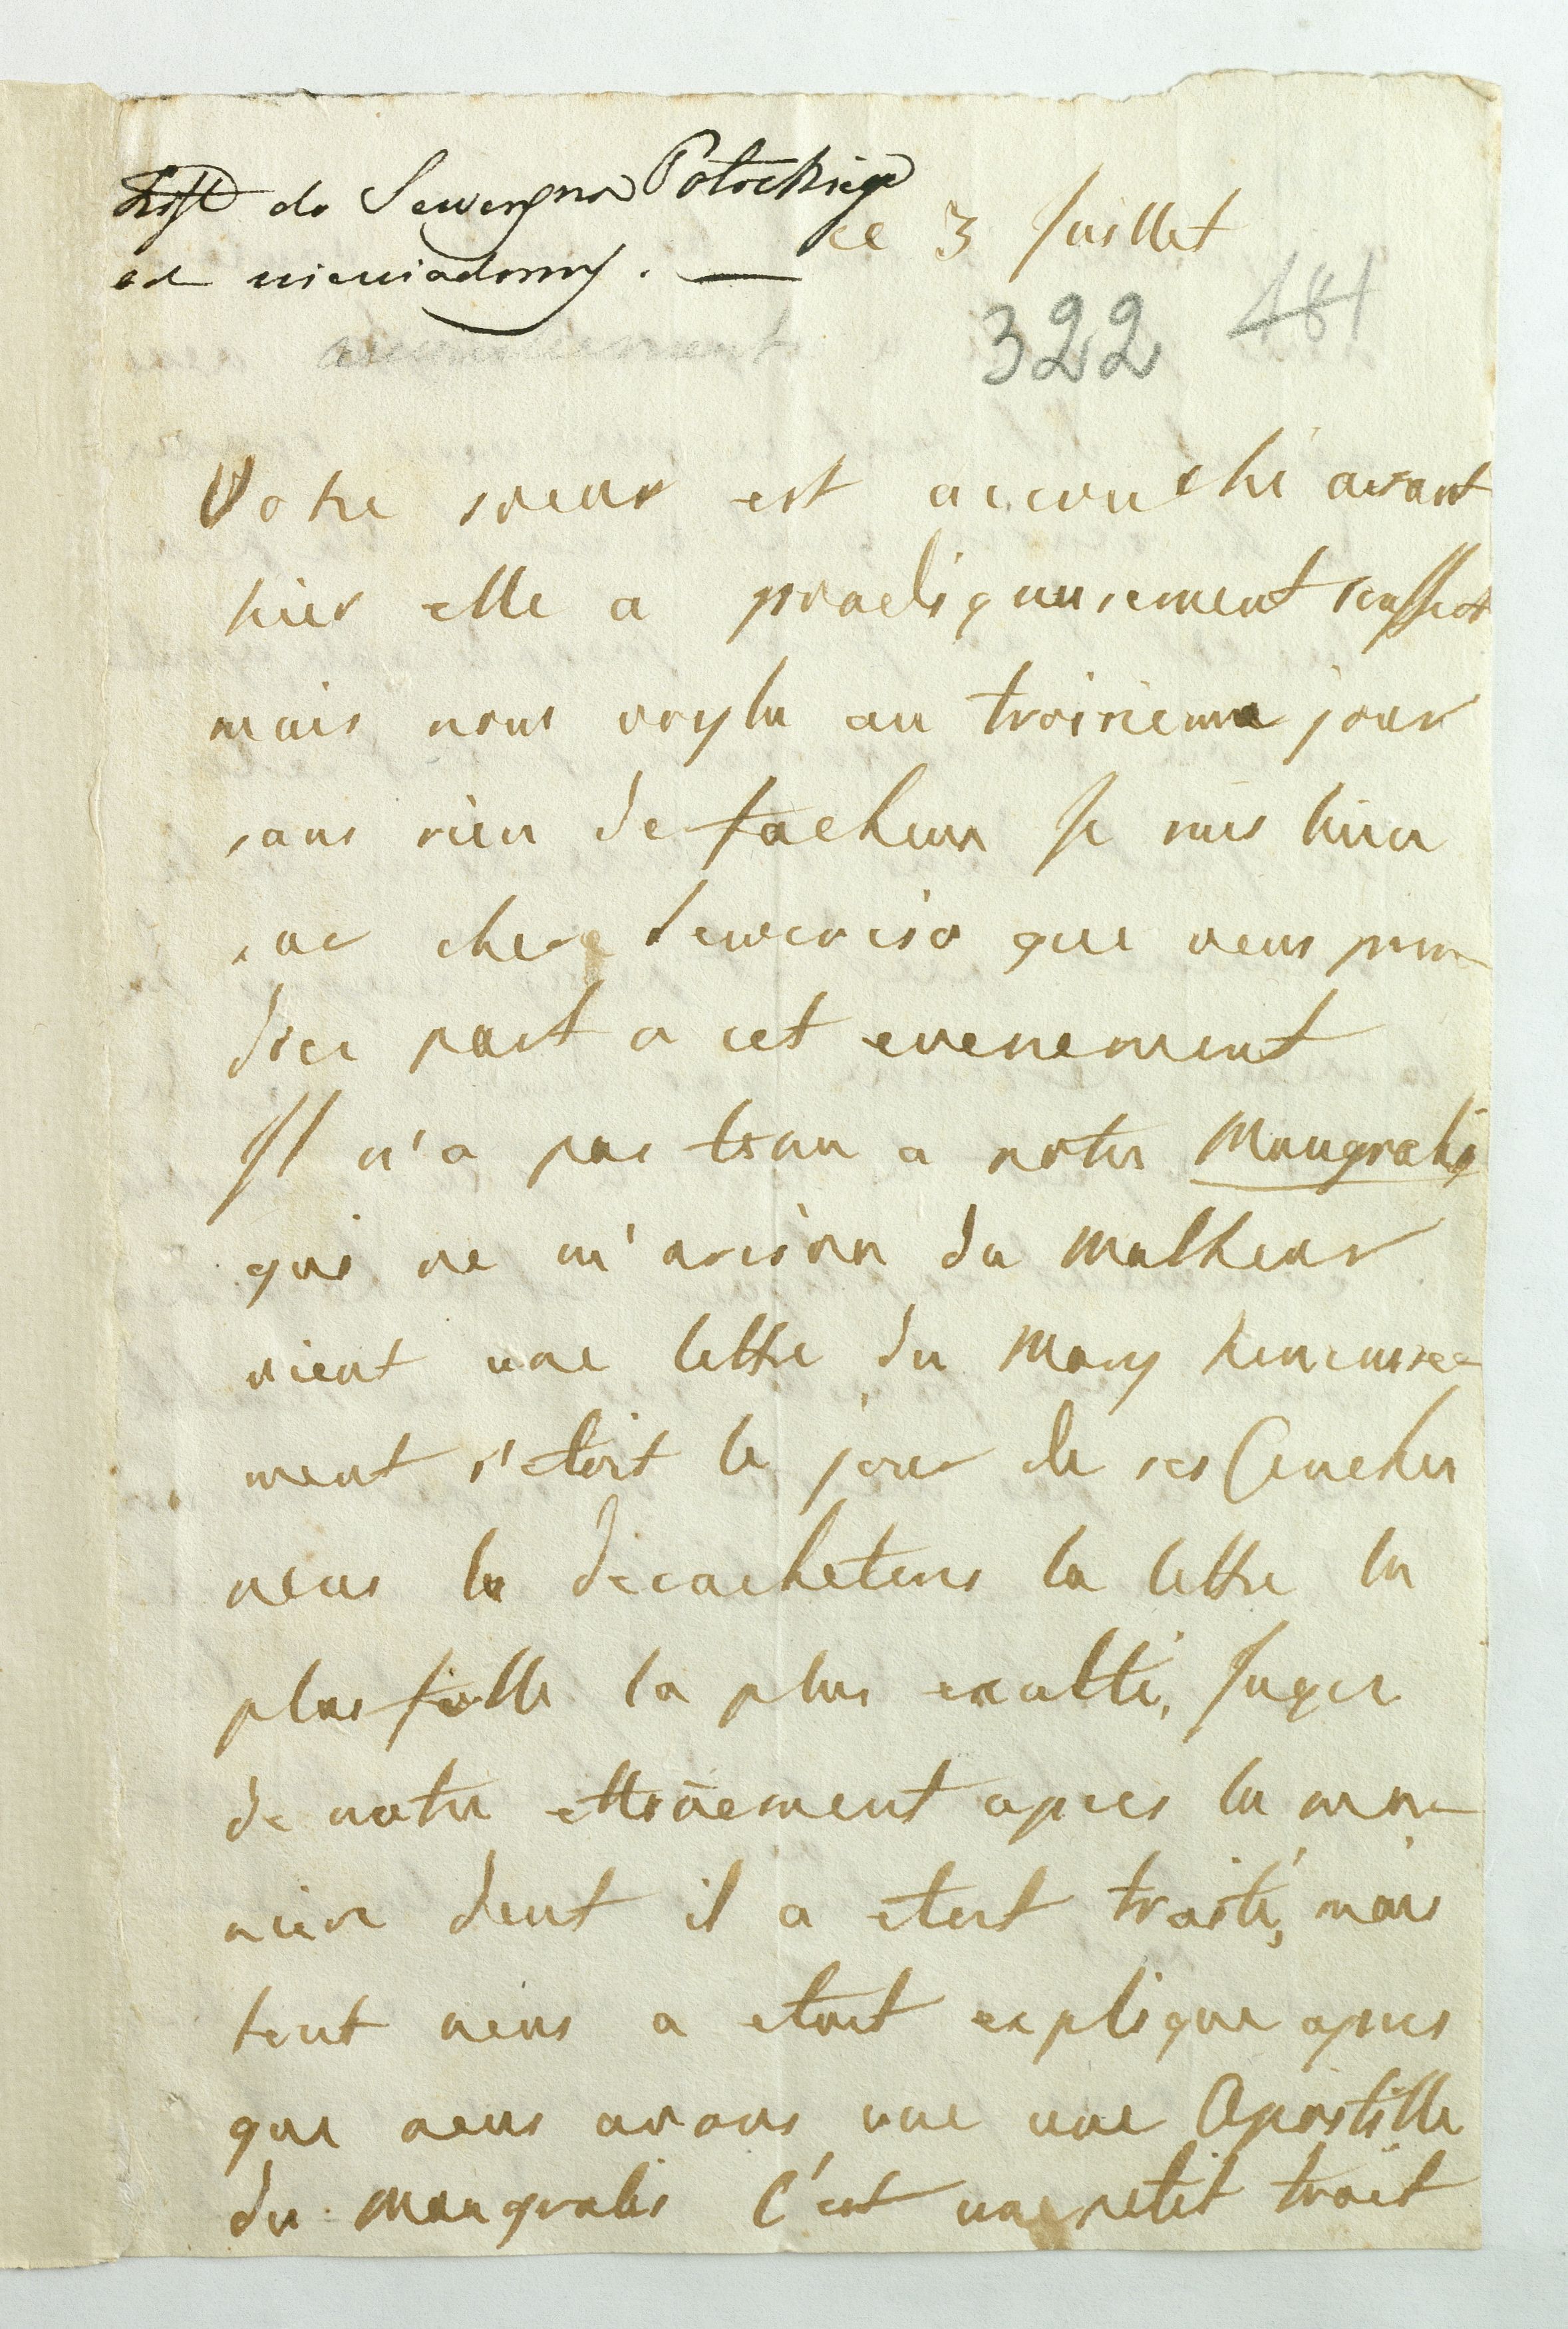 List do Seweryna Potockiego
od niewiadomej. —
ce 3 Juillet
322 481
Votre soeur est accouché avant
hier elle a prodigieusement souffert
mais nous voyla au troisieme jour
sans rien de facheux Je suis bien
sur cher Seweriso que vous pren
drez part a cet evenement
Il n'a pas tenu a notre Maugrabi
qui ne m'arriva du Malheur
vient une lettre du Mary heureuse
ment s'etoit le jour de ses Couches
nous la decachetons la lettre la
plus folle la plus exalté, Jugez
de notre ettonement apres la ma
niere dont il a etoit traité, mais
tout nous a etoit explique apres
que nous avons vue une Apostille
du Maugrabis C'est une petit trait